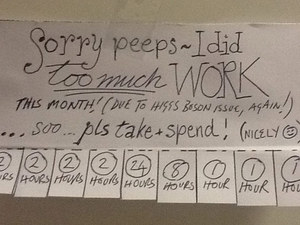 Sorry peeps~I did
too much WORK
THIS MONTH! (DUE TO HIGGS BOSON ISSUE, AGAIN!)
... soo... pls take + spend! (NICELY ☺)
2 2 2 2 24 8 1 1 1
URS HOURS HOURS HOURS HOURS HOURS HOUR HOUR HOUR